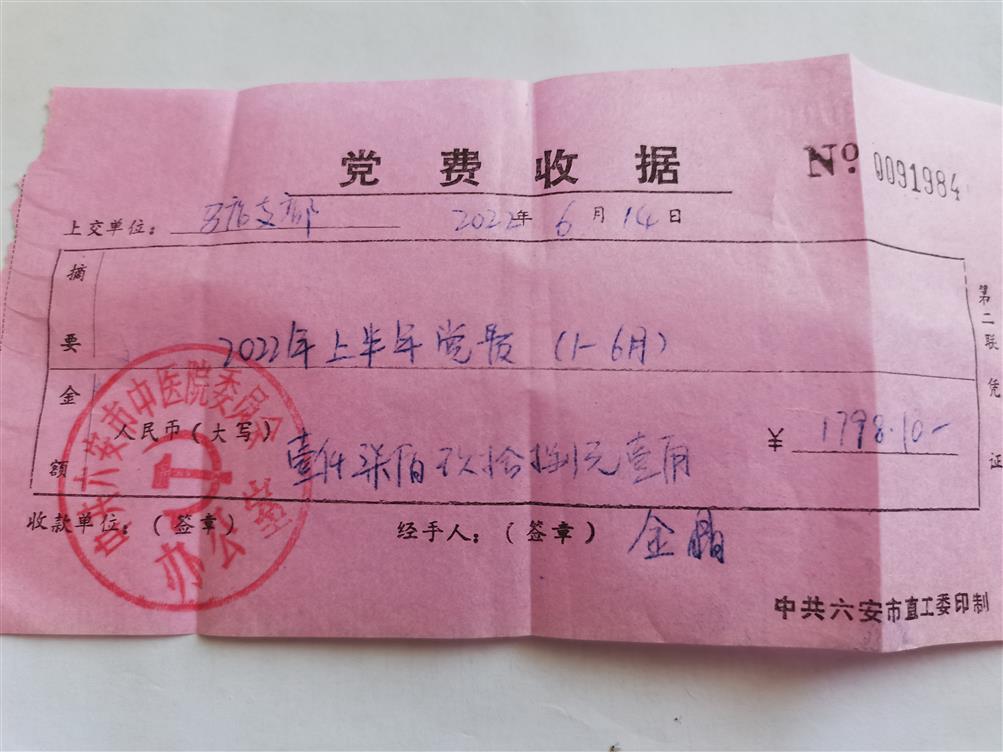 党费收据 No. 0091984
上交单位： 支部 2022年6月14日
摘要 2022年上半年党费（1-6月）
金额 人民币（大写） 壹仟柒佰玖拾捌元壹角 ¥ 1798.10-
收款单位：（签章） 经手人：（签章） 金晶
中共六安市直工委印制
第二联 凭证
中共六安市中医院委员会
办公室